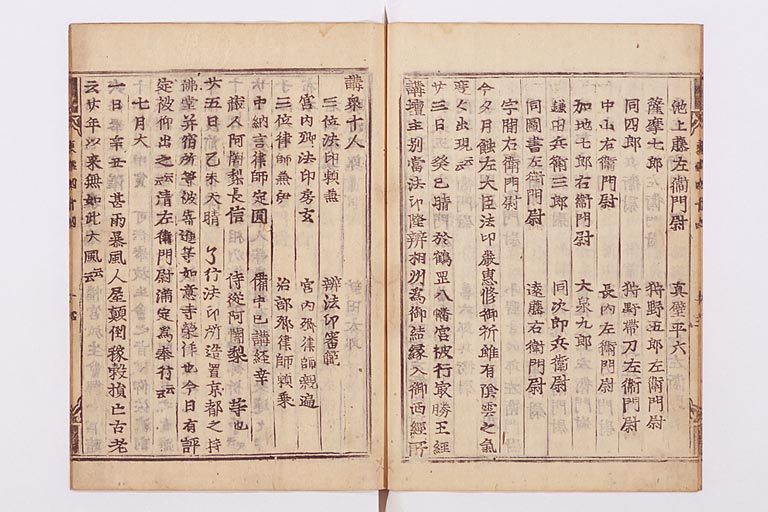 池上藤左衛門尉　真壁平六
薩摩七郎左衛門尉　狩野五郎左衛門尉
同四郎　狩野帯刀左衛門尉
中山右衛門尉　長内左衛門尉
加地七郎右衛門尉　大泉九郎
鎌田兵衛三郎　同次郎兵衛尉
同圖書左衛門尉　遠藤右衛門尉
宇間左衛門尉
今夕月蝕左大臣法印嚴恵修御祈雖有陰雲之氣
弯々出現云云
廿三日癸巳晴於鶴罡八幡宮被行最勝王經
講壇主別當法印隆辨相州為御結縁入御西經所
講衆十人
三位法印頼兼　辨法印審範
宮内卿法印房玄　宮内卿律師親遍
三位律師兼伊　治部卿律師頼乗
中納言律師定圓　備中已講經幸
蔵人阿闍梨長信　侍從阿闍梨　等也
廿五日乙未天晴　了行法印所造置京都之持
佛堂并宿所等被寄進等如意寺
定被仰出之云云清左衛門尉満定為奉行云云
七月大
一日辛丑甚雨暴風人屋顛倒稼穀損亡古老
云廿年以來無如此大風云云